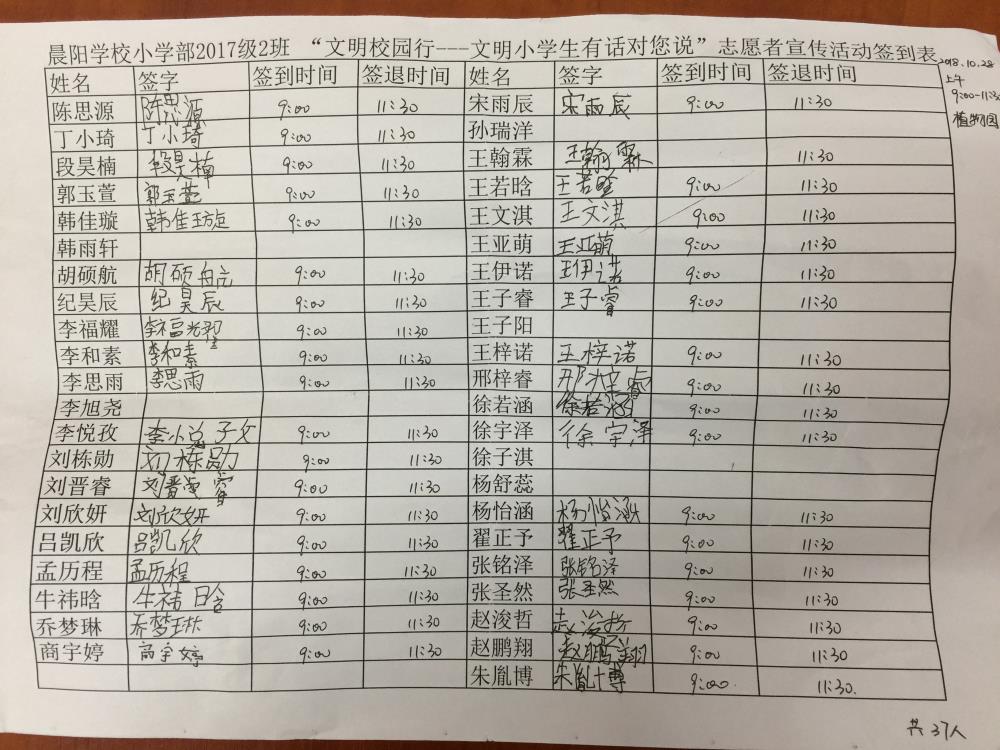 晨阳学校小学部2017级2班 “文明校园行---文明小学生有话对您说”志愿者宣传活动签到表
2018.10.28
上午
9:00-11:30
植物园
姓名 签字 签到时间 签退时间 姓名 签字 签到时间 签退时间
陈思源 陈思源 9:00 11:30 宋雨辰 宋雨辰 9:00 11:30
丁小琦 丁小琦 9:00 11:30 孙瑞洋
段昊楠 段昊楠 9:00 11:30 王翰霖 王翰霖 11:30
郭玉萱 郭玉萱 9:00 11:30 王若晗 王若晗 9:00 11:30
韩佳璇 韩佳璇 9:00 11:30 王文淇 王文淇 9:00 11:30
韩雨轩 王亚萌 王亚萌 9:00 11:30
胡硕航 胡硕航 9:00 11:30 王伊诺 王伊诺 9:00 11:30
纪昊辰 纪昊辰 9:00 11:30 王子睿 王子睿 9:00 11:30
李福耀 李福耀 9:00 11:30 王子阳
李和素 李和素 9:00 11:30 王梓诺 王梓诺 9:00 11:30
李思雨 李思雨 9:00 11:30 邢梓睿 邢梓睿 9:00 11:30
李旭尧 徐若涵 徐若涵 9:00 11:30
李悦孜 李悦孜 9:00 11:30 徐宇泽 徐宇泽 9:00 11:30
刘栋勋 刘栋勋 9:00 11:30 徐子淇
刘晋睿 刘晋睿 9:00 11:30 杨舒蕊
刘欣妍 刘欣妍 9:00 11:30 杨怡涵 杨怡涵 9:00 11:30
吕凯欣 吕凯欣 9:00 11:30 翟正予 翟正予 9:00 11:30
孟历程 孟历程 9:00 11:30 张铭泽 张铭泽 9:00 11:30
牛祎晗 牛祎晗 9:00 11:30 张圣然 张圣然 9:00 11:30
乔梦琳 乔梦琳 9:00 11:30 赵浚哲 赵浚哲 9:00 11:30
商宇婷 商宇婷 9:00 11:30 赵鹏翔 赵鹏翔 9:00 11:30
朱胤博 朱胤博 9:00 11:30
共37人